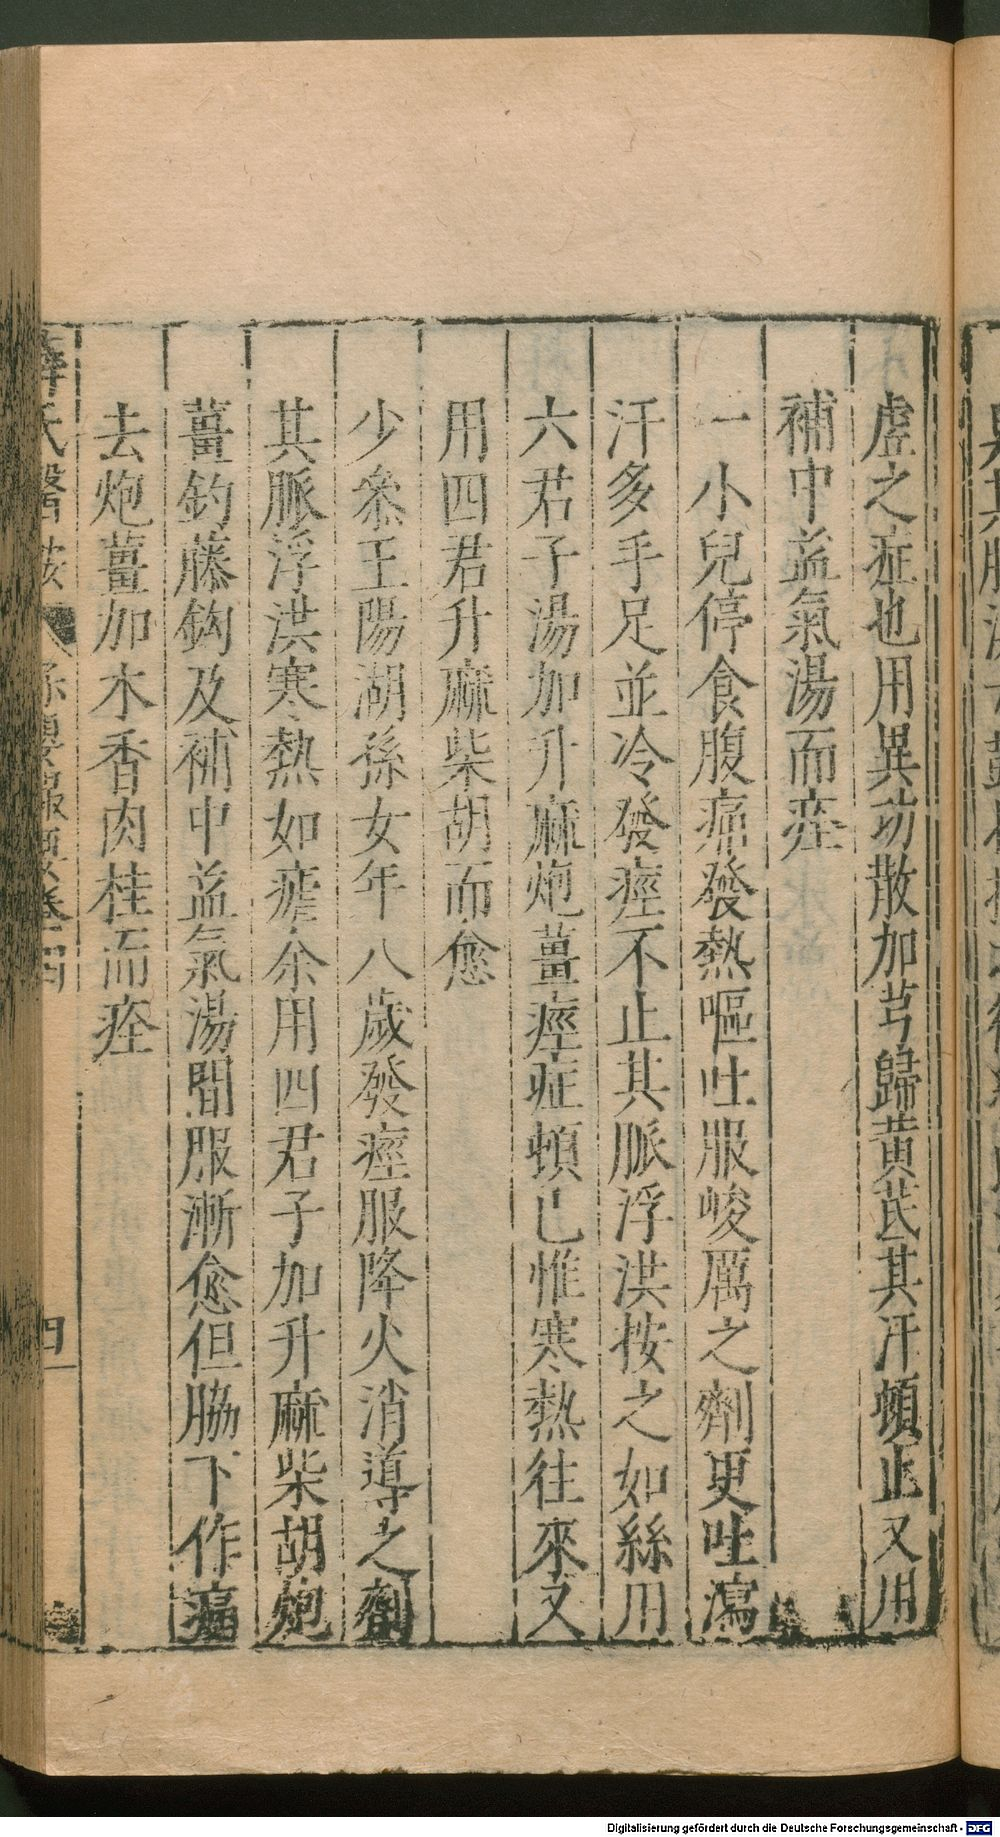 虛之症也用異功散加芎歸黃芪其汗頓止又用
補中益氣湯而痊
一小兒停食腹痛發熱嘔吐服峻厲之劑更吐瀉
汗多手足並冷發痙不止其脈浮洪按之如絲用
六君子湯加升麻炮薑痙症頓已惟寒熱往來又
用四君升麻柴胡而愈
少參王陽湖孫女年八歲發痙服降火消導之劑
其脈浮洪寒熱如瘧余用四君子加升麻柴胡炮
薑鈞藤鈎及補中益氣湯間服漸愈但脇下作痛
去炮薑加木香肉桂而痊
薛氏醫按 保嬰撮要卷四
四
Digitalisierung gefördert durch die Deutsche Forschungsgemeinschaft - DFG